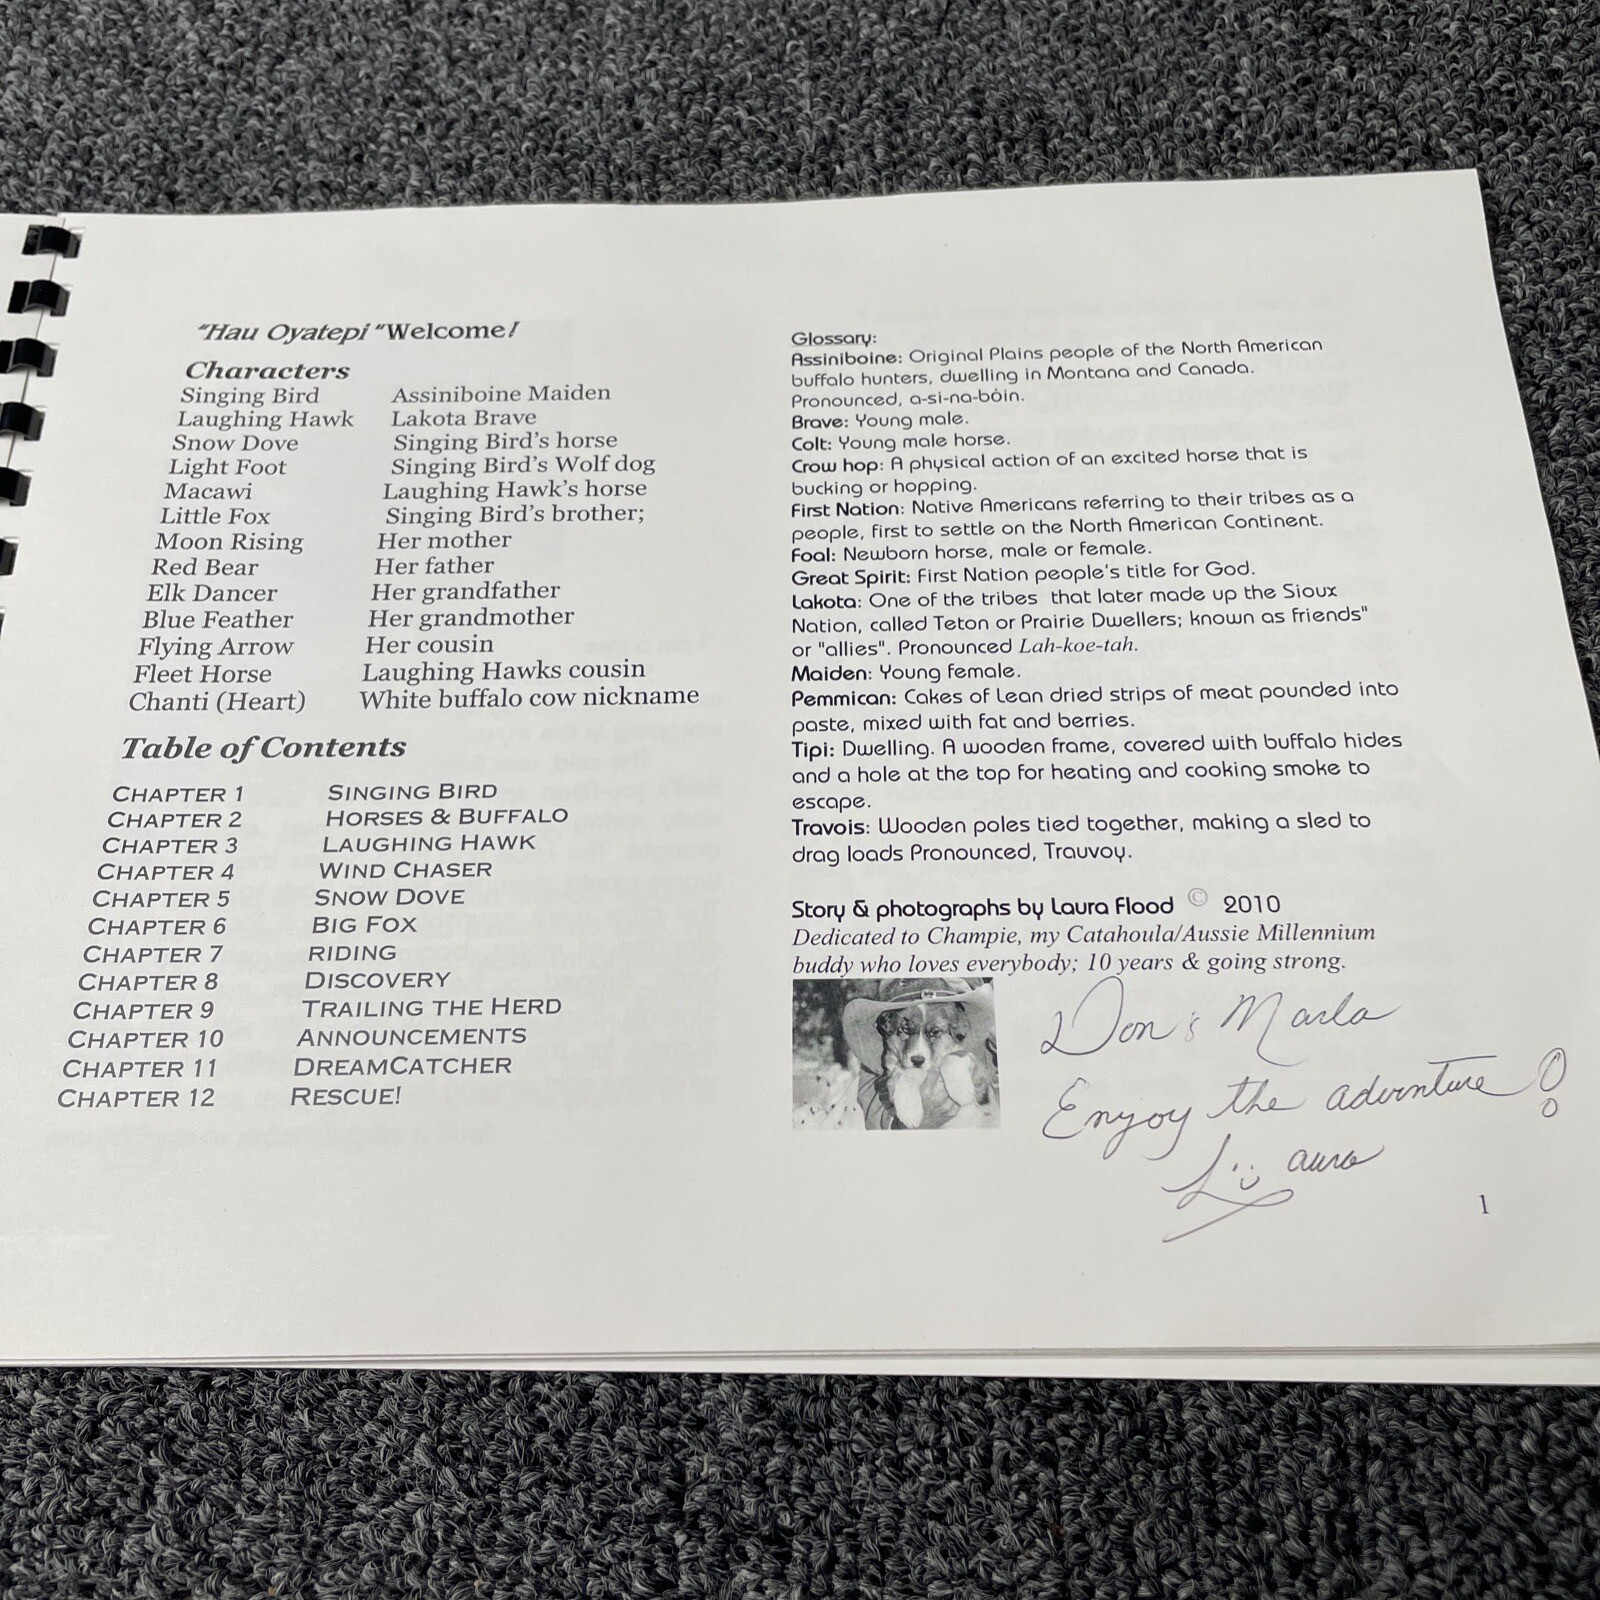 "Hau Oyatepi "Welcome!
Characters
Singing Bird Assiniboine Maiden
Laughing Hawk Lakota Brave
Snow Dove Singing Bird's horse
Light Foot Singing Bird's Wolf dog
Macawi Laughing Hawk's horse
Little Fox Singing Bird's brother;
Moon Rising Her mother
Red Bear Her father
Elk Dancer Her grandfather
Blue Feather Her grandmother
Flying Arrow Her cousin
Fleet Horse Laughing Hawks cousin
Chanti (Heart) White buffalo cow nickname
Table of Contents
CHAPTER 1 SINGING BIRD
CHAPTER 2 HORSES & BUFFALO
CHAPTER 3 LAUGHING HAWK
CHAPTER 4 WIND CHASER
CHAPTER 5 SNOW DOVE
CHAPTER 6 BIG FOX
CHAPTER 7 RIDING
CHAPTER 8 DISCOVERY
CHAPTER 9 TRAILING THE HERD
CHAPTER 10 ANNOUNCEMENTS
CHAPTER 11 DREAMCATCHER
CHAPTER 12 RESCUE!
Glossary:
Assiniboine: Original Plains people of the North American
buffalo hunters, dwelling in Montana and Canada.
Pronounced, a-si-na-bòin.
Brave: Young male.
Colt: Young male horse.
Crow hop: A physical action of an excited horse that is
bucking or hopping.
First Nation: Native Americans referring to their tribes as a
people, first to settle on the North American Continent.
Foal: Newborn horse, male or female.
Great Spirit: First Nation people's title for God.
Lakota: One of the tribes that later made up the Sioux
Nation, called Teton or Prairie Dwellers; known as friends"
or "allies". Pronounced Lah-koe-tah.
Maiden: Young female.
Pemmican: Cakes of Lean dried strips of meat pounded into
paste, mixed with fat and berries.
Tipi: Dwelling. A wooden frame, covered with buffalo hides
and a hole at the top for heating and cooking smoke to
escape.
Travois: Wooden poles tied together, making a sled to
drag loads Pronounced, Trauvoy.
Story & photographs by Laura Flood © 2010
Dedicated to Champie, my Catahoula/Aussie Millennium
buddy who loves everybody; 10 years & going strong.
Don & Marla
Enjoy the adventure!
Laura
1